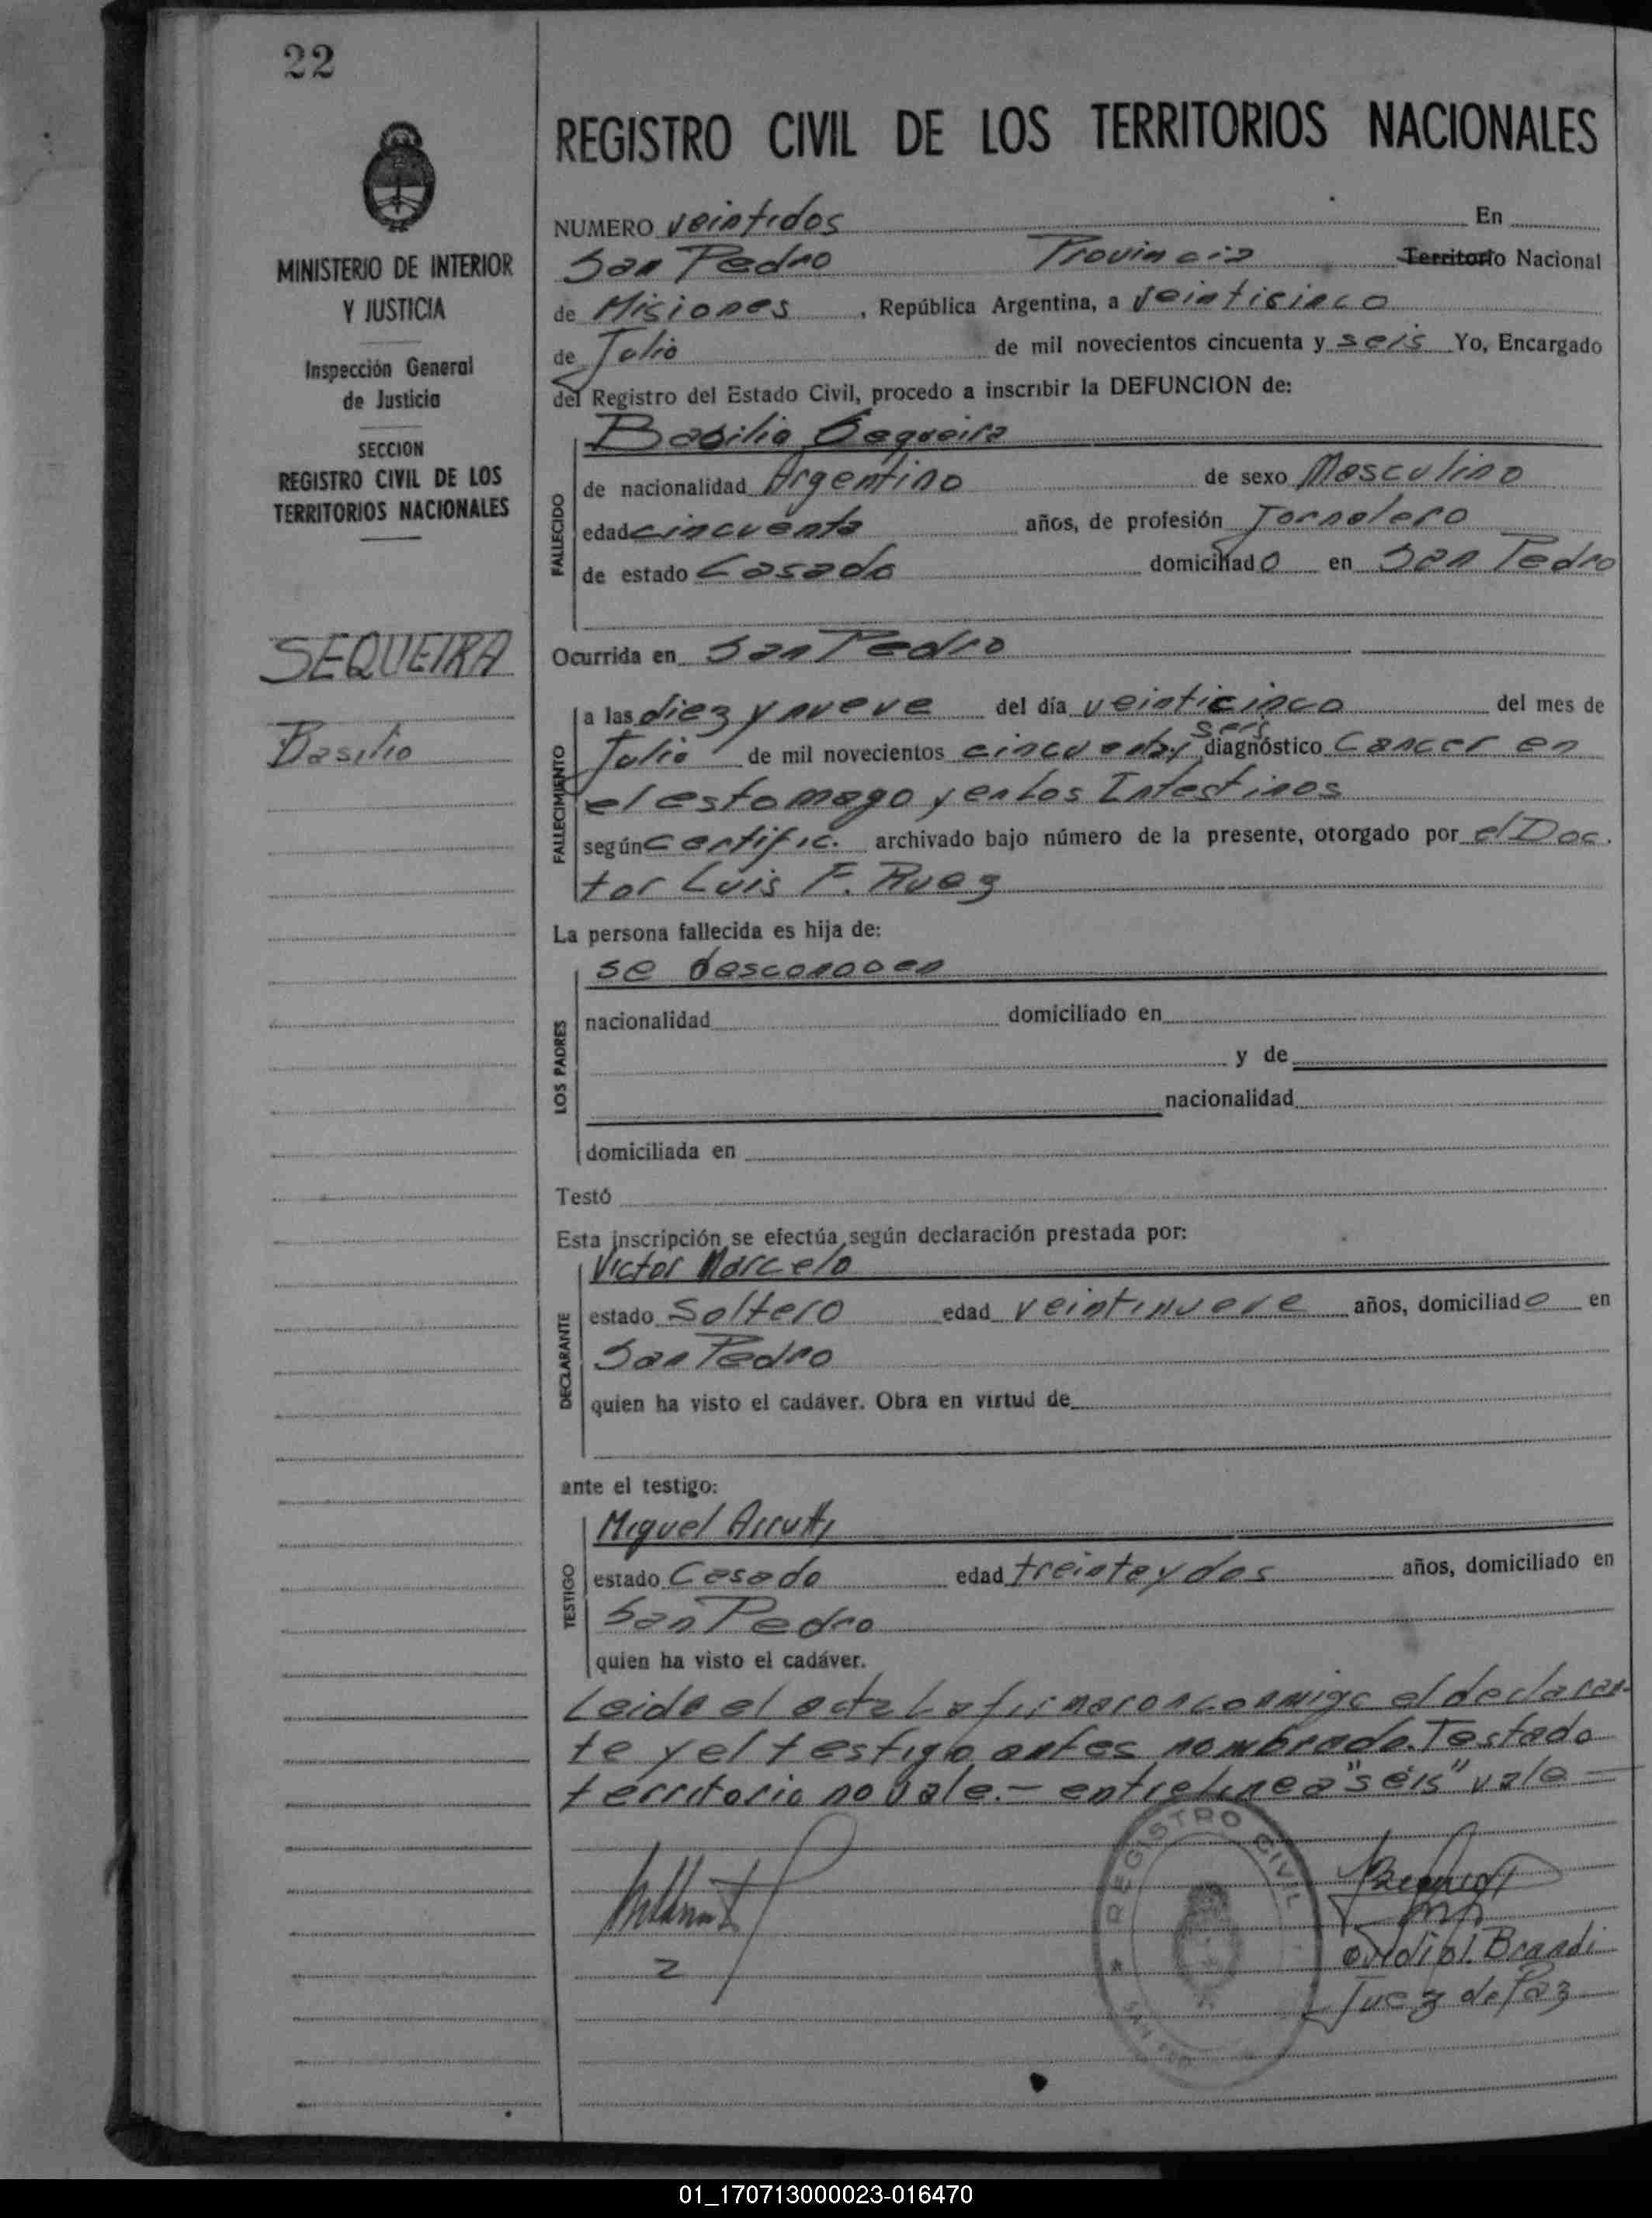 22
MINISTERIO DE INTERIOR
Y JUSTICIA
Inspección General
de Justicia
SECCION
REGISTRO CIVIL DE LOS
TERRITORIOS NACIONALES
SEQUEIRA
Basilio
REGISTRO CIVIL DE LOS TERRITORIOS NACIONALES
NUMERO veintidos En
San Pedro Provincia Territorio Nacional
de Misiones, República Argentina, a veinticinco
de Julio de mil novecientos cincuenta y seis Yo, Encargado
del Registro del Estado Civil, procedo a inscribir la DEFUNCION de:
Basilio Sequeira
FALLECIDO
de nacionalidad Argentino de sexo Masculino
edad cincuenta años, de profesión Jornalero
de estado Casado domiciliado en San Pedro
Ocurrida en San Pedro
FALLECIMIENTO
a las diez y nueve del día veinticinco del mes de
seis
Julio de mil novecientos cincuenta y diagnóstico Cancer en
el estomago y en los Intestinos
según certific. archivado bajo número de la presente, otorgado por el Doc.
tor Luis F.
La persona fallecida es hija de:
LOS PADRES
se desconocen
nacionalidad domiciliado en
y de
nacionalidad
domiciliada en
Testó
Esta inscripción se efectúa según declaración prestada por:
DECLARANTE
Victor Marcelo
estado Soltero edad veintinueve años, domiciliado en
San Pedro
quien ha visto el cadáver. Obra en virtud de
ante el testigo:
TESTIGO
Miguel
estado Casado edad treinta y dos años, domiciliado en
San Pedro
quien ha visto el cadáver.
Leida el acta la firmaron conmigo el declaran-
te y el testigo antes nombrado. Testado
territorio no vale.- entrelinea "seis" vale-
REGISTRO CIVIL
Brandi
Juez de Paz
01_170713000023-016470